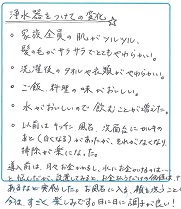 浄水器をつけての変化
・家族全員の肌がツルツル、
髪の毛がサラサラでとてもやわらかい。
・洗濯後のタオルや衣類がやわらかい。
・ご飯、料理の味がおいしい。
・水がおいしいので飲むことが増えた。
・以前はキッチン、風呂、洗面台に
あと(白くなる)があったが、それがなくなり
掃除が楽になった。
導入前は、
と悩んだが、設置してみると、
あるなと実感した。お風呂に入る、顔を洗うこと
今は、すごく楽しみです。日に日に調子が良い!